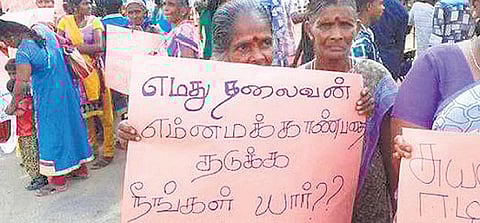 எமது தலைவன்
எம்னமக்காண்பதை
தடுக்க
நீங்கள் யார்??
சுய